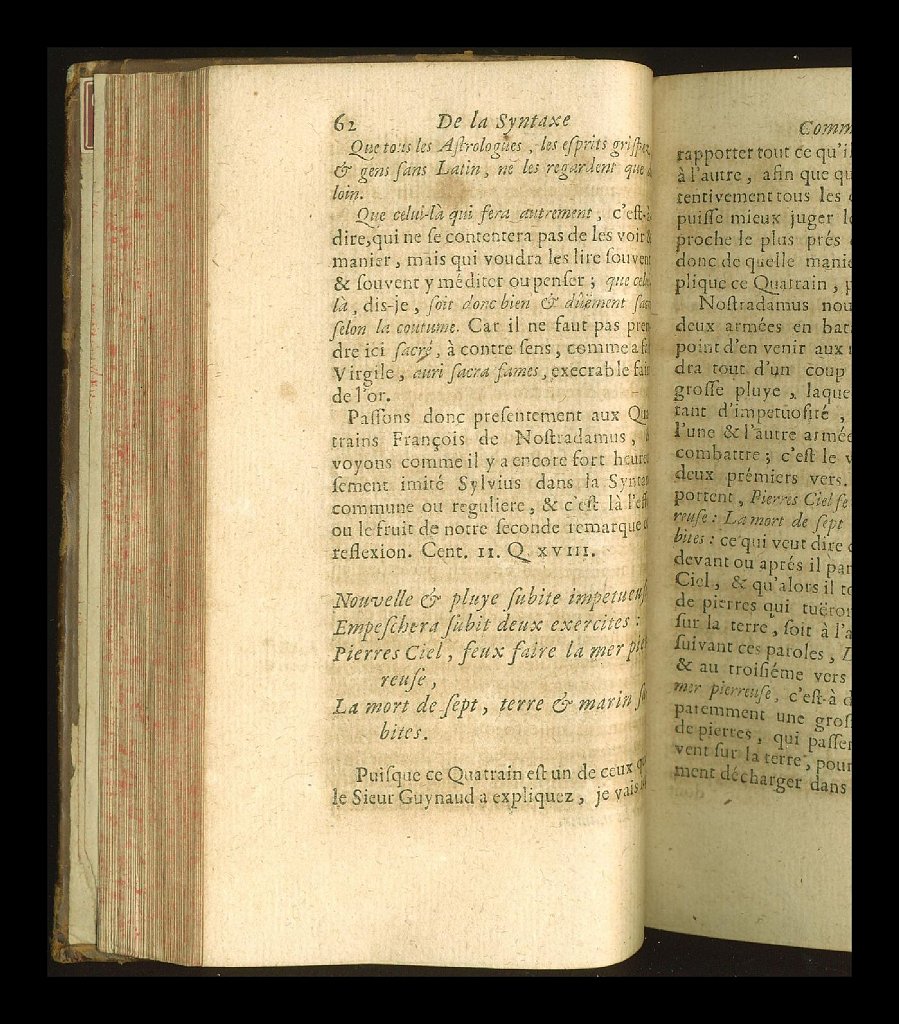 62 De la Syntaxe
Que tous les Astrologues, les esprits
& gens sans Latin, ne les regardent que
loin.
Que celui-là qui fera autrement, c'est-à
dire, qui ne se contentera pas de les voir &
manier, mais qui voudra les lire souvent
& souvent y méditer ou penser; que celui
là, dis-je, soit donc bien & dûement
selon la coutume. Car il ne faut pas pren
dre ici sacré, à contre sens, comme a
Virgile, auri sacra fames, execrable
de l'or.
Passons donc presentement aux
trains François de Nostradamus,
voyons comme il y a encore fort heure
sement imité Sylvius dans la
commune ou reguliere, & c'est là
ou le fruit de notre seconde remarque
reflexion. Cent. II. Q. XVIII.
Nouvelle & pluye subite
Empeschera subit deux exercites:
Pierres Ciel, feux faire la mer
reuse,
La mort de sept, terre & marin
bites.
Puisque ce Quatrain est un de ceux
le Sieur Guynaud a expliquez, je vais
Comm
rapporter tout ce qu'i
à l'autre, afin que qu
tentivement tous les
puisse mieux juger
proche le plus prés
donc de quelle mani
plique ce Quatrain,
Nostradamus nou
deux armées en bat
point d'en venir aux
dra tout d'un coup
grosse pluye, laque
tant d'impetuosité,
l'une & l'autre armée
combattre; c'est le
deux prémiers vers.
portent, Pierres Ciel fe
reuse: La mort de sept
bites: ce qui veut dire
devant ou aprés il par
Ciel, & qu'alors il to
de pierres qui tuëron
sur la terre, soit à l'a
suivant ces paroles,
& au troisiéme vers
mer pierreuse, c'est-à
paremment une gros
de pierres, qui passer
vent sur la terre, pour
ment décharger dans